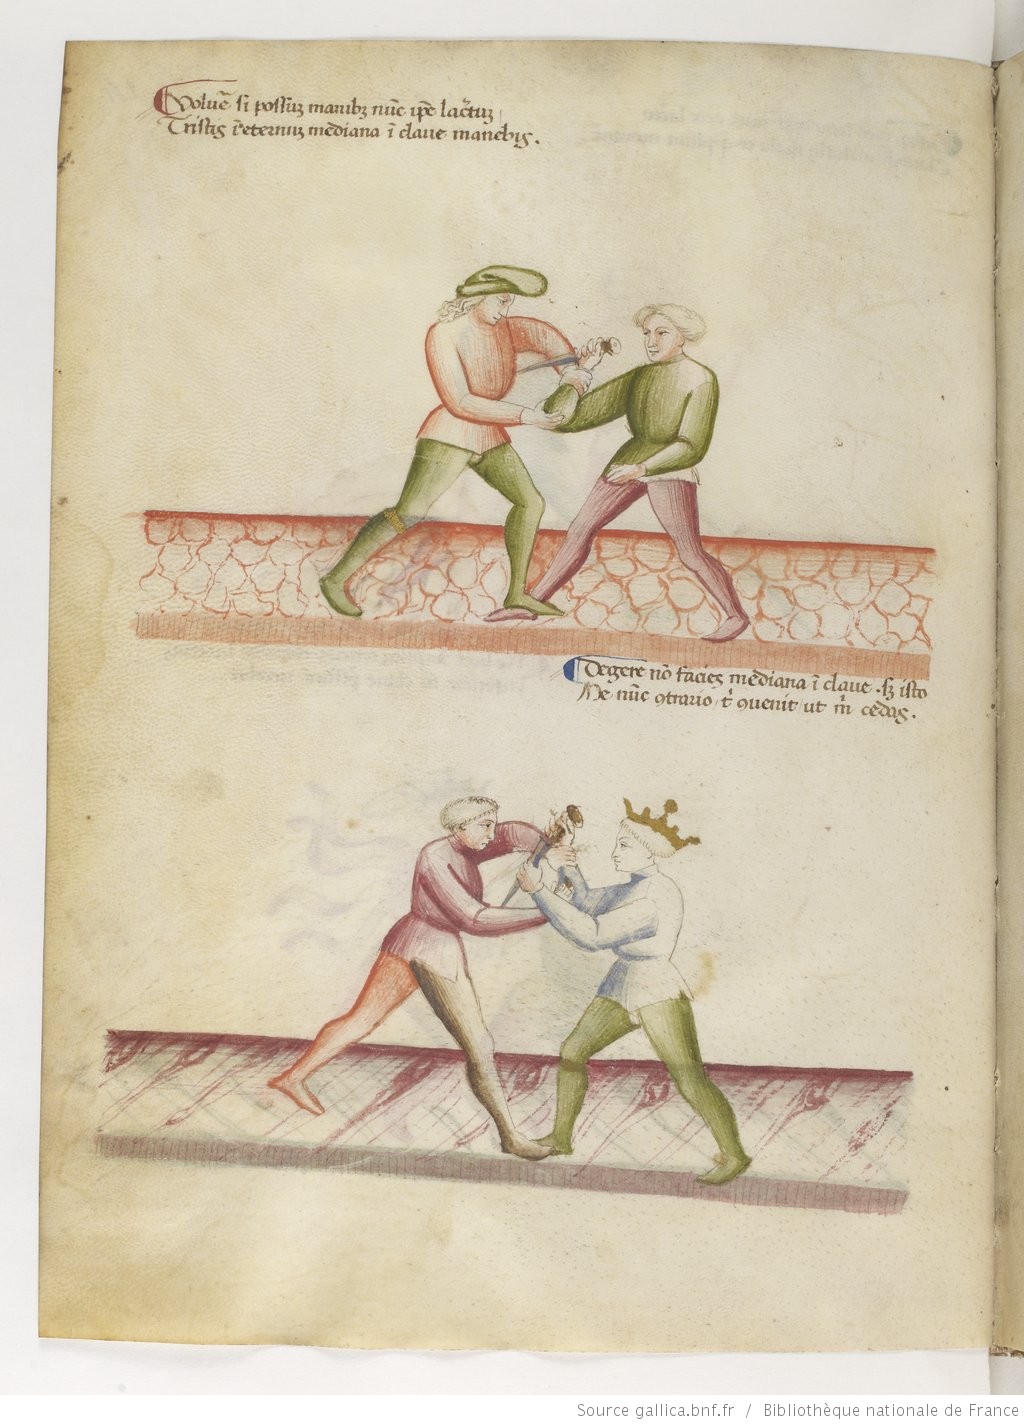 Volvẽ si possũ manibꝫ nũc ip̃e lac̃tuꝫ
Tristis ĩ eternuꝫ mediana ĩ clave manebis.
Degere nõ facies mediana ĩ clave . sꝫ isto
Me nũc ꝯtrario . t̃ ꝯvenit ut m̃ cedas.
Source gallica.bnf.fr / Bibliothèque nationale de France